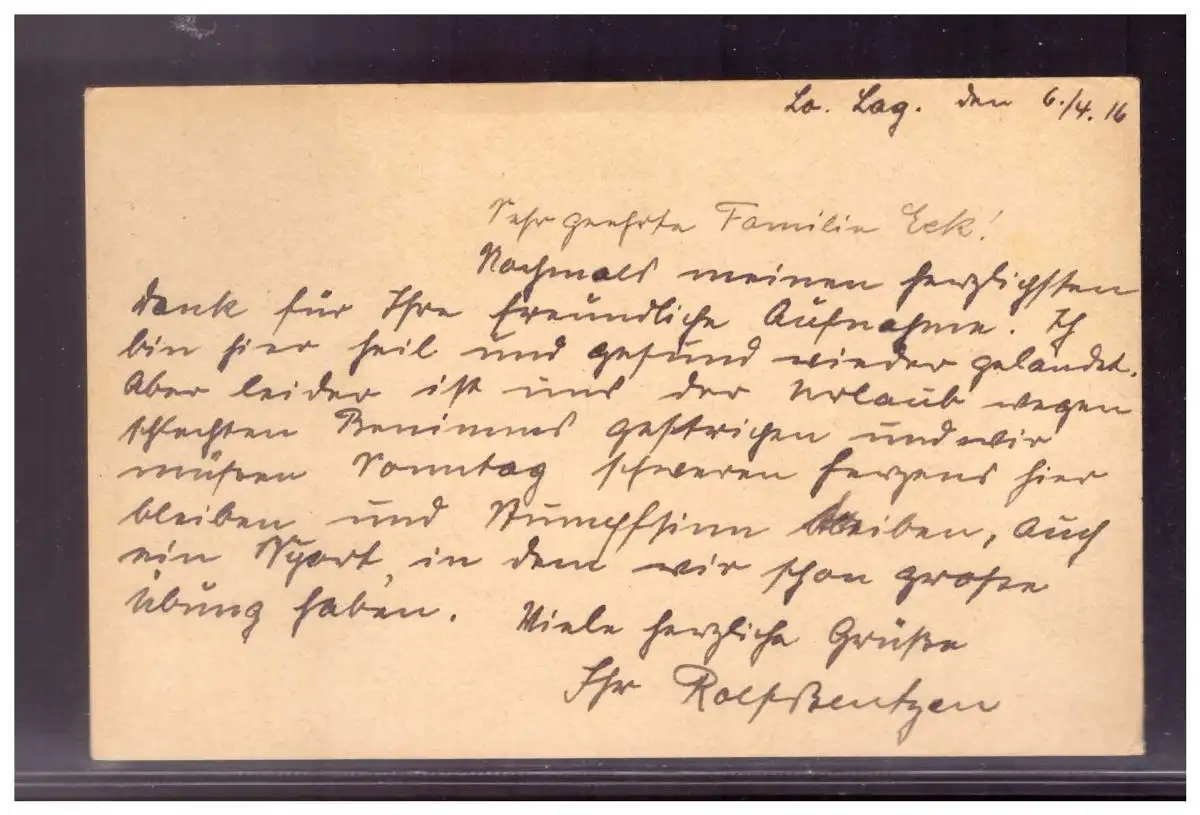 Lo. Lag. den 6./4. 16
Sehr geehrte Familie Eck!
Nochmals meinen herzlichsten
Dank für Ihre freundliche Aufnahme. Ich
bin hier heil und gesund wieder gelandet.
Aber leider ist uns der Urlaub wegen
schlechten Benimms gestrichen und wir
müßen Sonntag schweren Herzens hier
bleiben und Stumpfsinn treiben, auch
ein Sport, in dem wir schon große
Übung haben. Viele herzliche Grüße
Ihr Rolf Bentzen